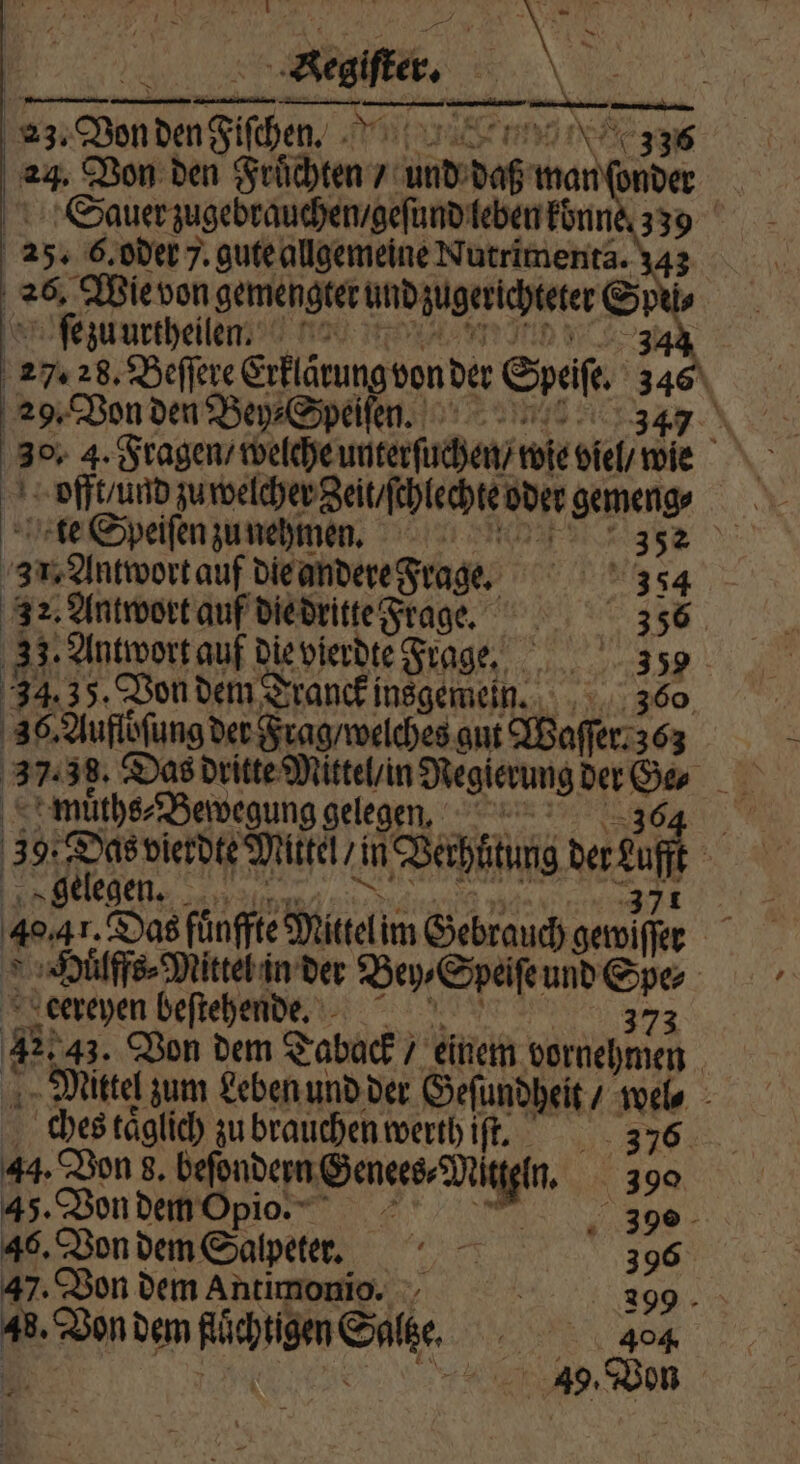 Regiſter.
23. Von den Fiſchen. 336
24. Von den Fruͤchten / und daß man ſonder
Sauer zugebrauchen/geſund leben koͤnne. 339
25. 6. oder 7. gute allgemeine Nutrimenta. 343
26. Wie von gemengter und zugerichteter Spei⸗
ſe zu urtheilen. 344
27. 28. Beſſere Erklaͤrung von der Speiſe. 346
29. Von den Bey⸗Speiſen. 347
30. 4. Fragen/ welche unterſuchen/ wie viel/ wie
offt/und zu welcher Zeit/ſchlechte oder gemeng⸗
te Speiſen zu nehmen. 352
31. Antwort auf die andere Frage. 354
32. Antwort auf die dritte Frage. 356
33. Antwort auf die vierdte Frage. 359
34. 35. Von dem Tranck insgemein. 360
36. Aufloͤſung der Frag/welches gut Waſſer. 363
37. 38. Das dritte Mittel/in Regierung der Ge⸗
muͤths⸗Bewegung gelegen. 364
39. Das vierdte Mittel / in Verhuͤtung der Lufft
gelegen. 371
40. 41. Das fuͤnffte Mittel im Gebrauch gewiſſer
Huͤlffs⸗Mittel in der Bey⸗Speiſe und Spe⸗
cereyen beſtehende. 373
42. 43. Von dem Taback / einem vornehmen
Mittel zum Leben und der Geſundheit / wel⸗
ches taͤglich zu brauchen werth iſt. 376
44. Von 8. beſondern Genees⸗Mitteln. 390
45. Von dem Opio. 390
46. Von dem Salpeter. 396
47. Von dem Antimonio. 399
48. Von dem fluͤchtigen Saltze. 404
49. Von